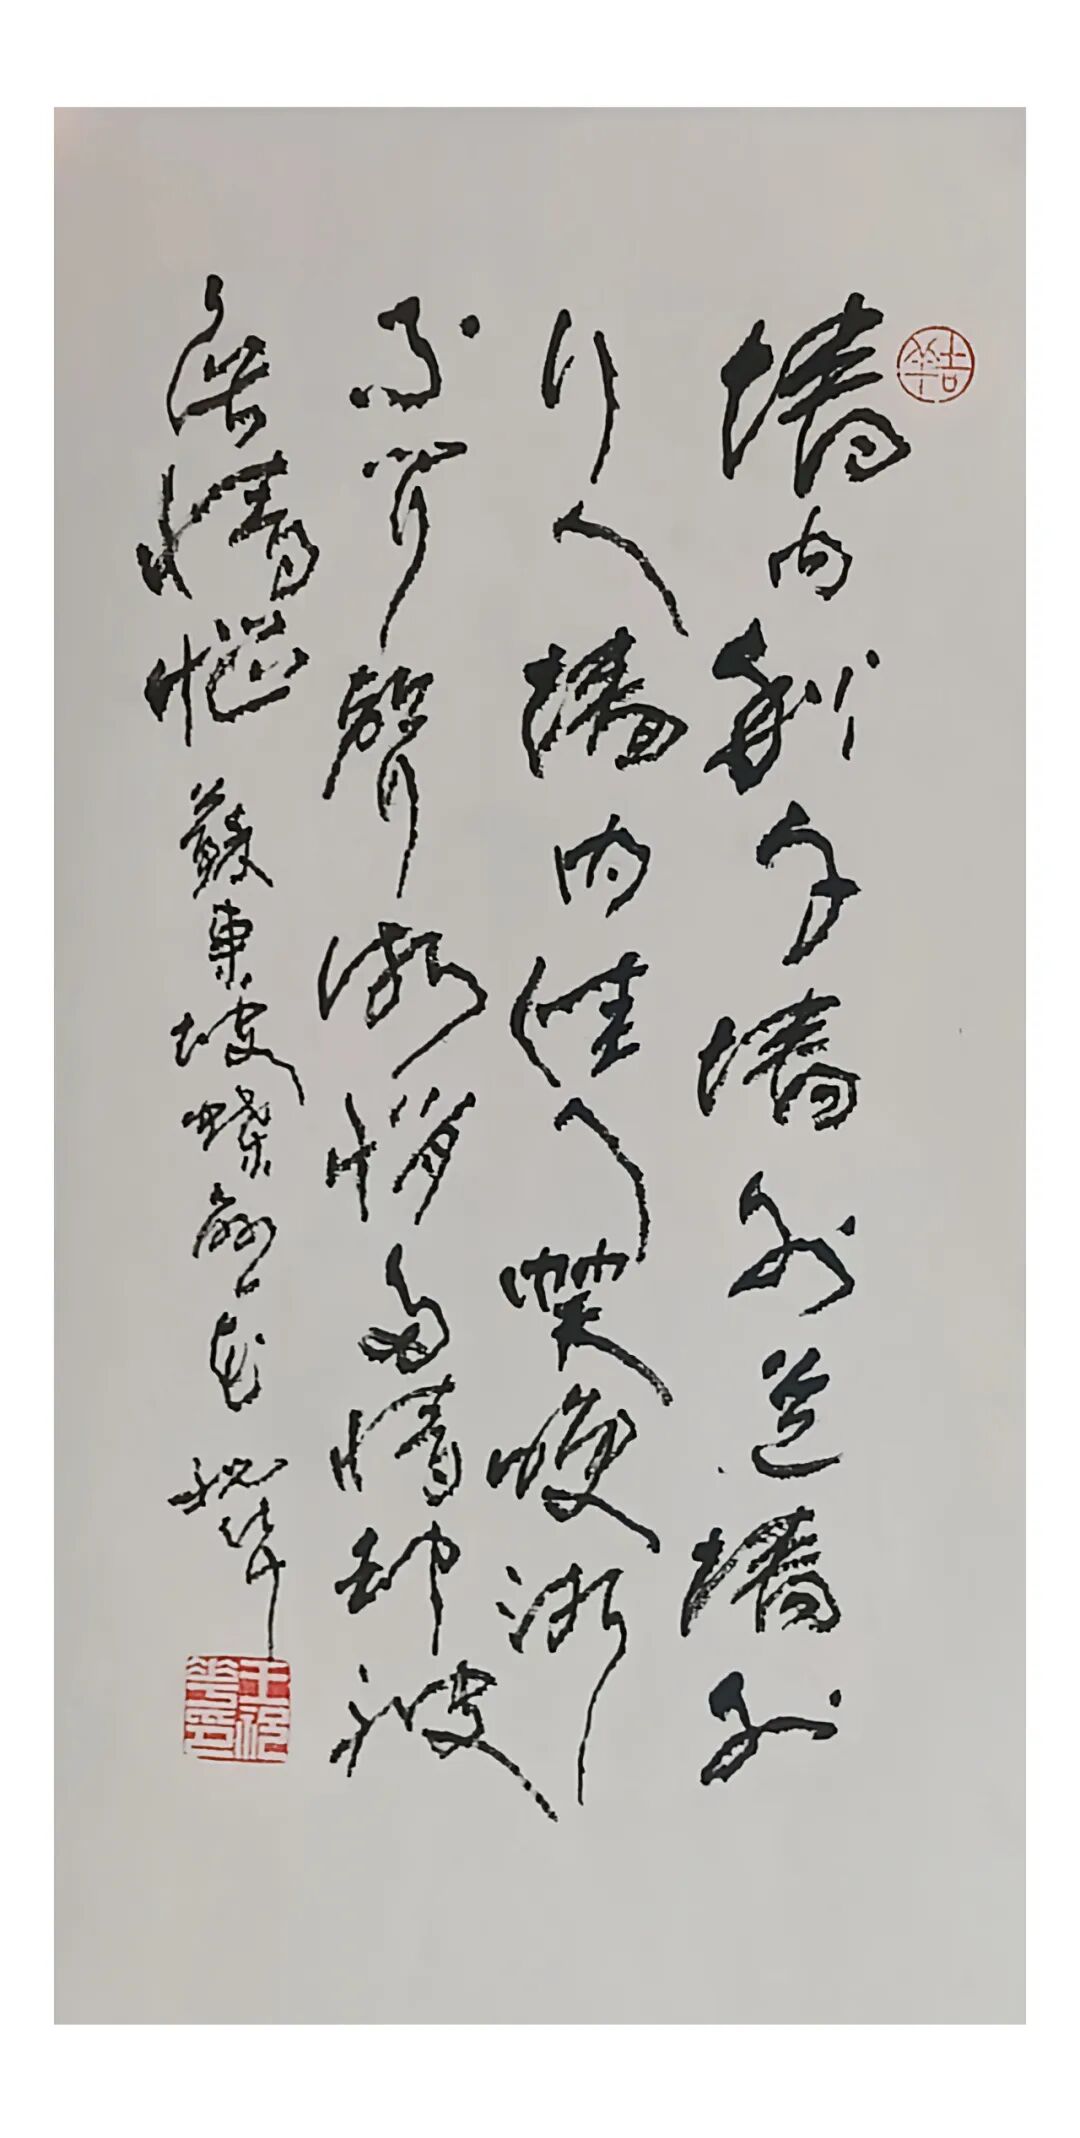 墙内秋千墙外道墙外
行人墙内佳人笑渐
不闻声渐悄多情却被
无情恼 蘇東坡蝶恋花